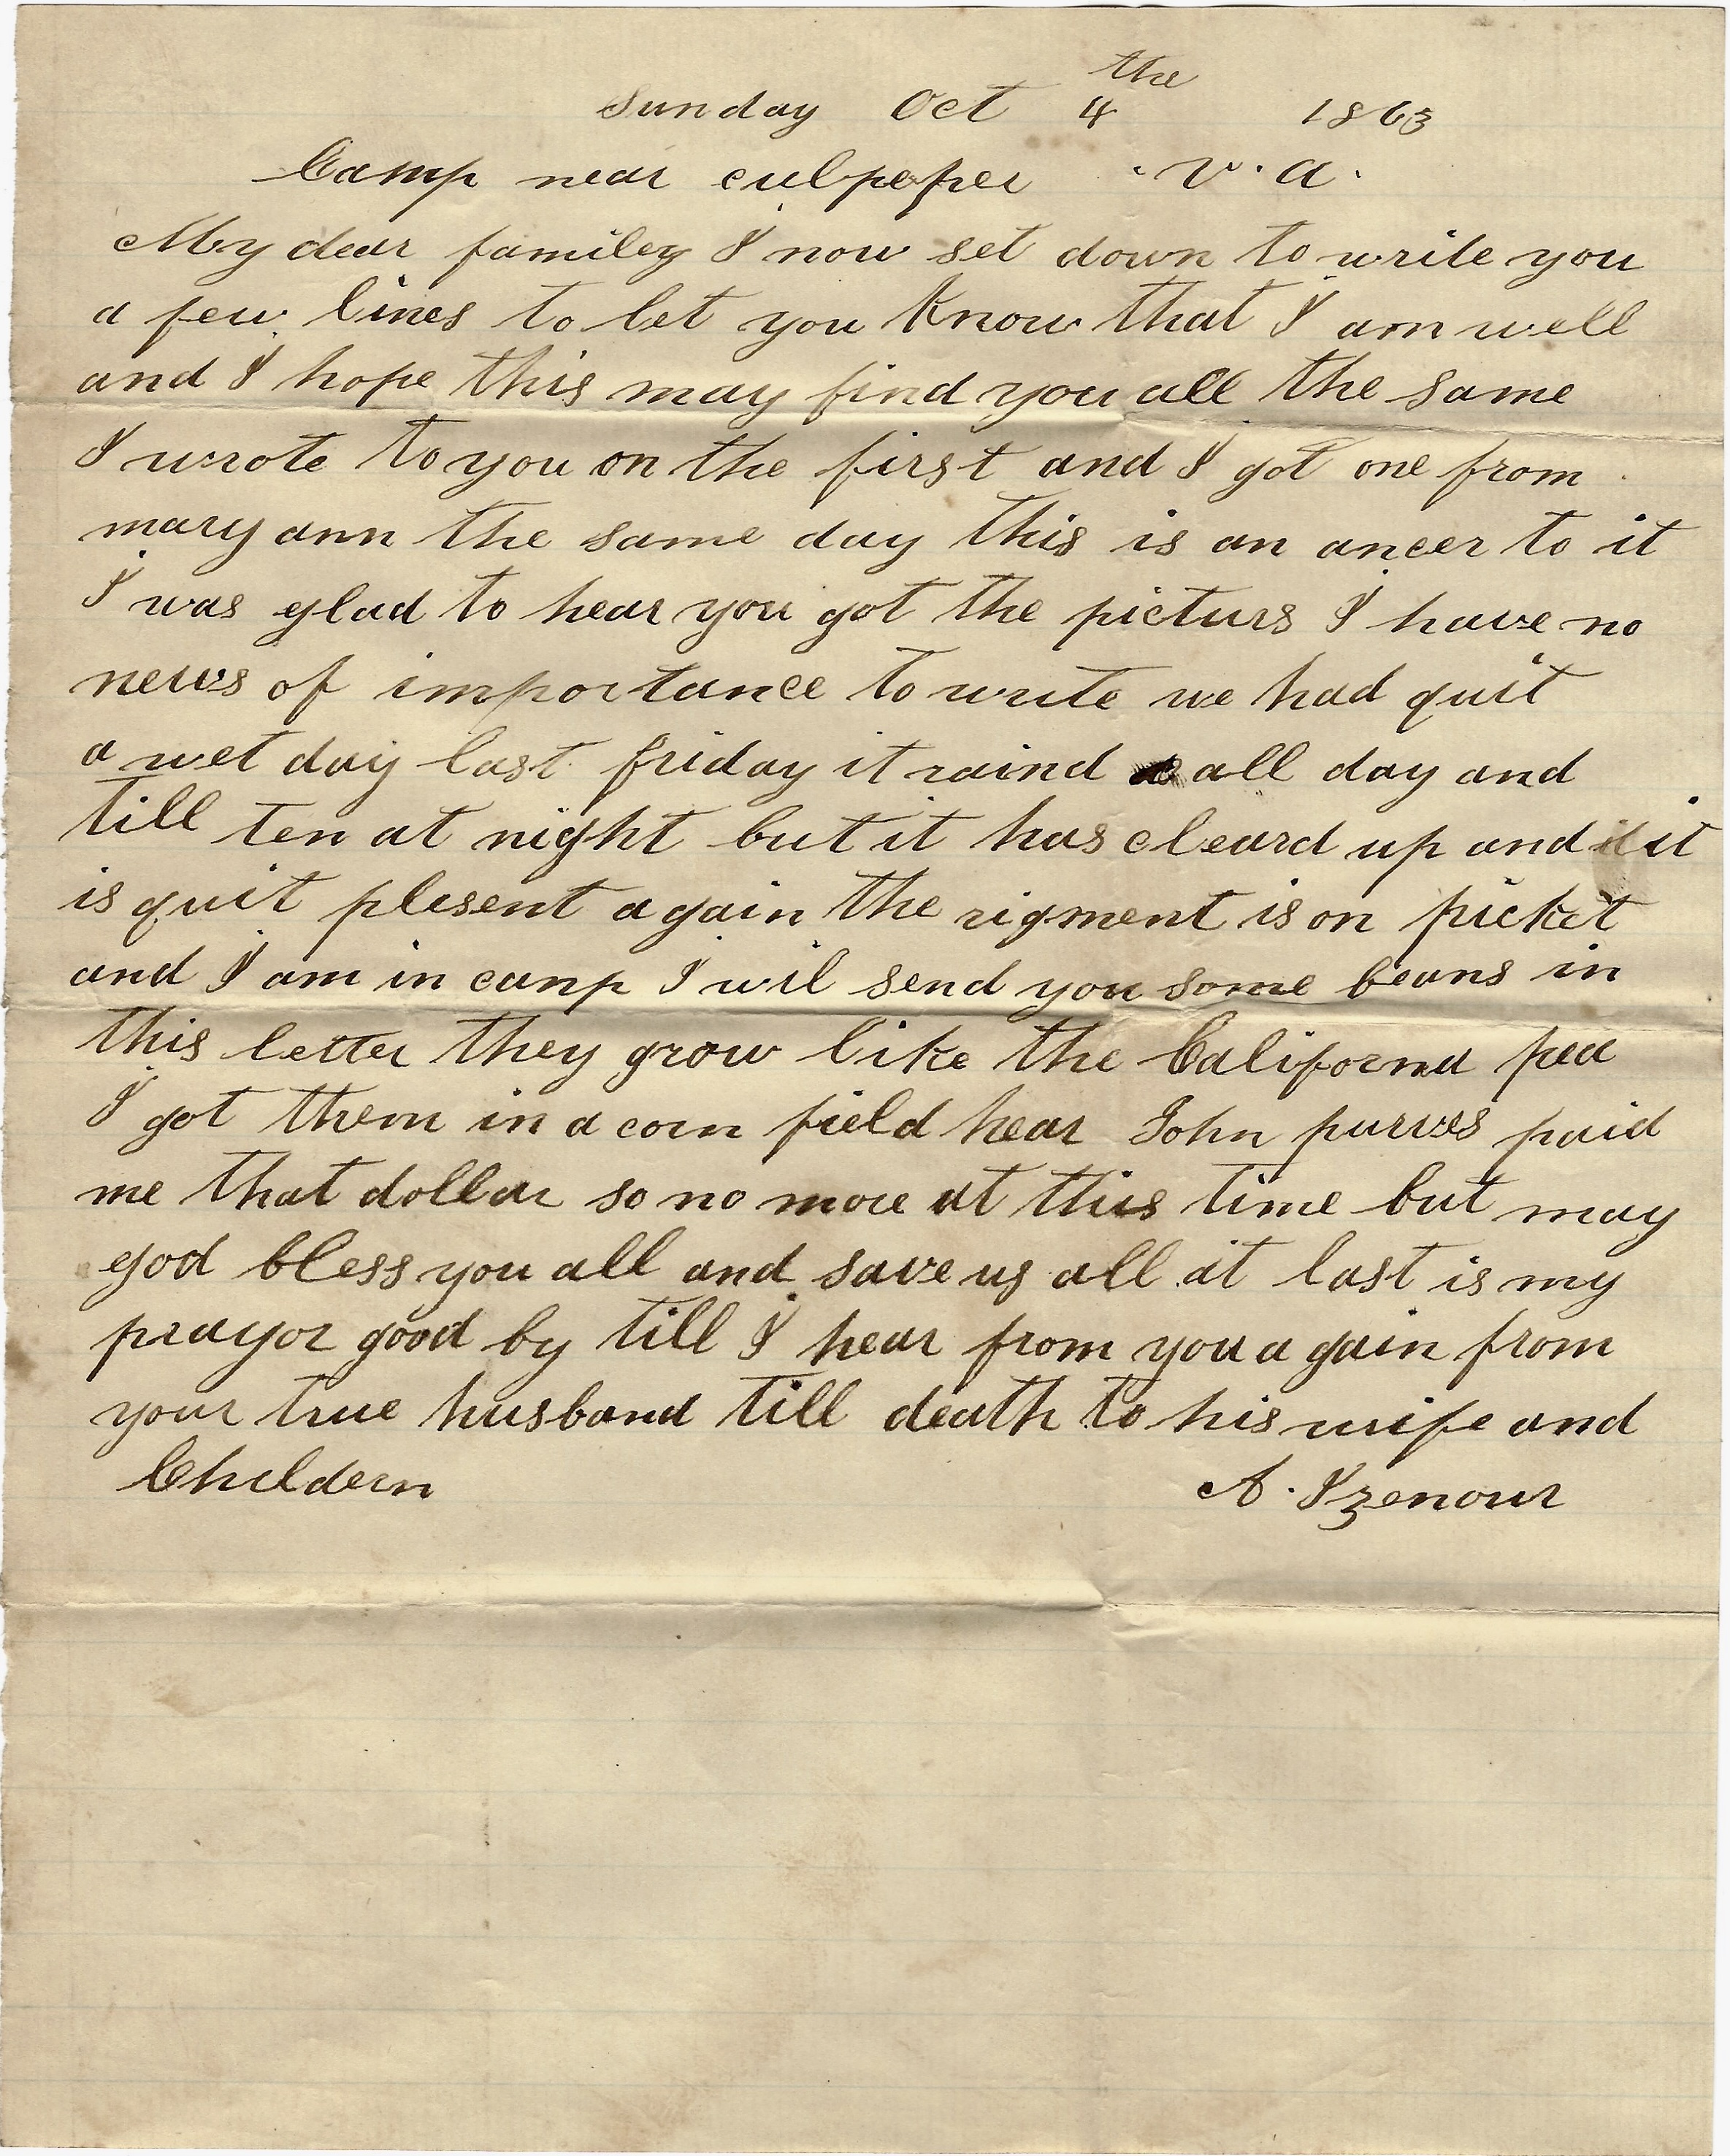 Sunday Oct 4the 1863
Camp near culpepper .v.a.
My dear familey I now set down to write you
a few lines to let you Know that I am well
and I hope this may find you all the same
I wrote to you on the first and I got one from
mary ann the same day this is an ancer to it
I was glad to hear you got the picturs I have no
news of importance to write we had quit
a wet day last friday it raind all day and
till ten at night but it has cleard up and it
is quit plesent again the rigment is on picket
and I am in camp I wil send you some beans in
this letter they grow like the Californa pea
I got them in a corn field hear John purves paid
me that dollar so no more at this time but may
god bless you all and save us all at last is my
prayor good by till I hear from you again from
your true husband till death to his wife and
Childern A. Izenour